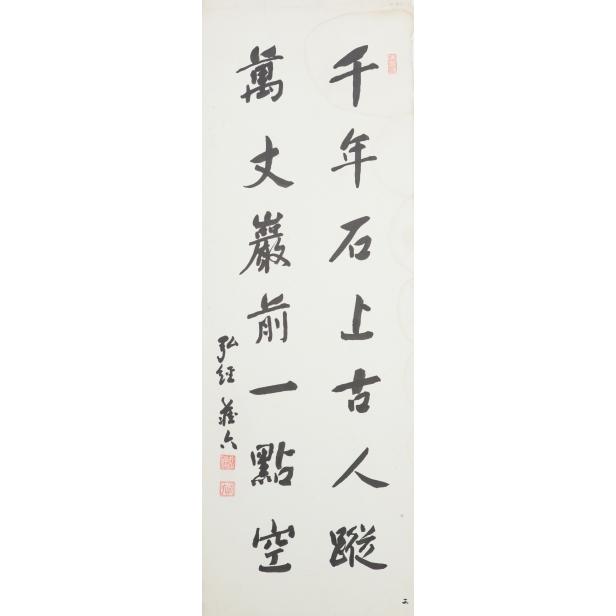 千年石上古人蹤
萬丈巖前一點空
弘經 藏六
二